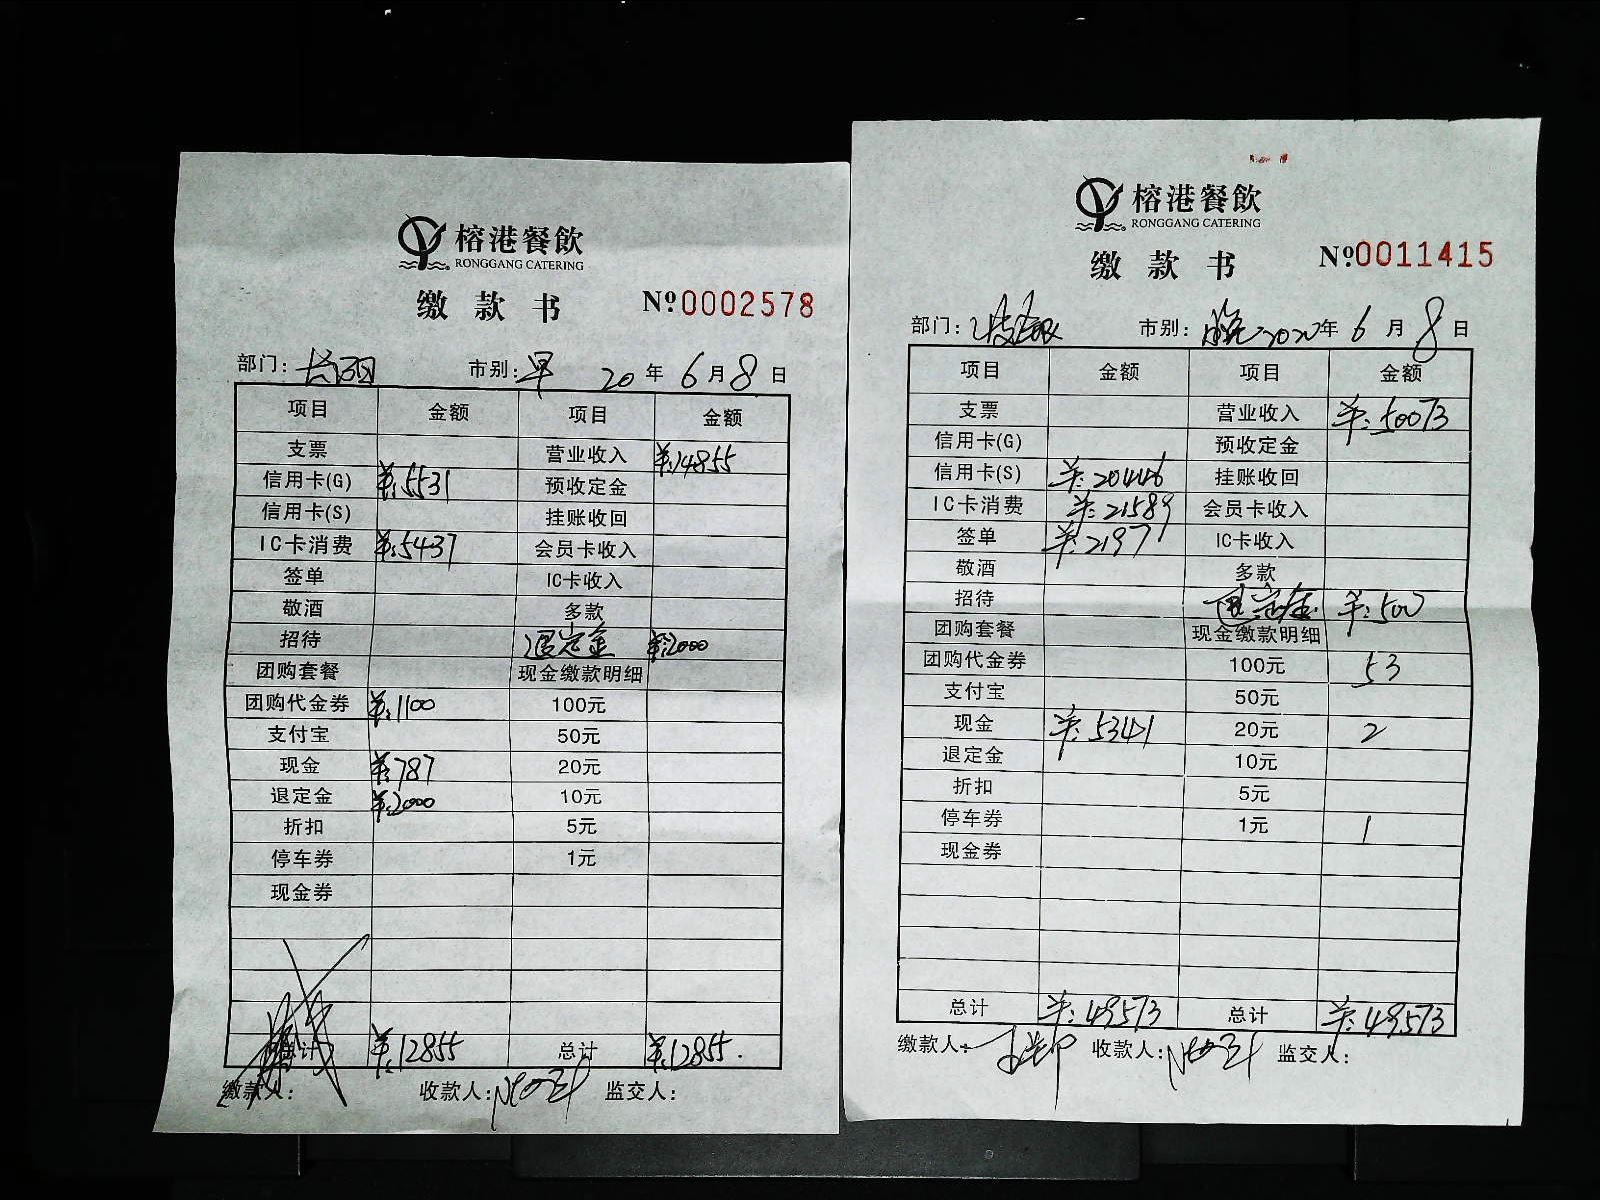 榕港餐飲
RONGGANG CATERING
缴款书
№0002578
部门: 市别: 早 20年6月8日
项目 金额 项目 金额
支票 营业收入 ¥:14855
信用卡(G) ¥:5531 预收定金
信用卡(S) 挂账收回
IC卡消费 ¥:5437 会员卡收入
签单 IC卡收入
敬酒 多款
招待 退定金 ¥:2000
团购套餐 现金缴款明细
团购代金券 ¥:1100 100元
支付宝 50元
现金 ¥:787 20元
退定金 ¥:2000 10元
折扣 5元
停车券 1元
现金券
总计 ¥:12855 总计 ¥:12855.
缴款人: 收款人: 监交人:
榕港餐飲
RONGGANG CATERING
缴款书
№0011415
部门: 市别: 晚 2020年6月8日
项目 金额 项目 金额
支票 营业收入 ¥:50073
信用卡(G) 预收定金
信用卡(S) ¥:20446 挂账收回
IC卡消费 ¥:21589 会员卡收入
签单 ¥:2197 IC卡收入
敬酒 多款
招待 退定金 ¥:500
团购套餐 现金缴款明细
团购代金券 100元 53
支付宝 50元
现金 ¥:5341 20元 2
退定金 10元
折扣 5元
停车券 1元 1
现金券
总计 ¥:49573 总计 ¥:49573
缴款人: 收款人: 监交人: